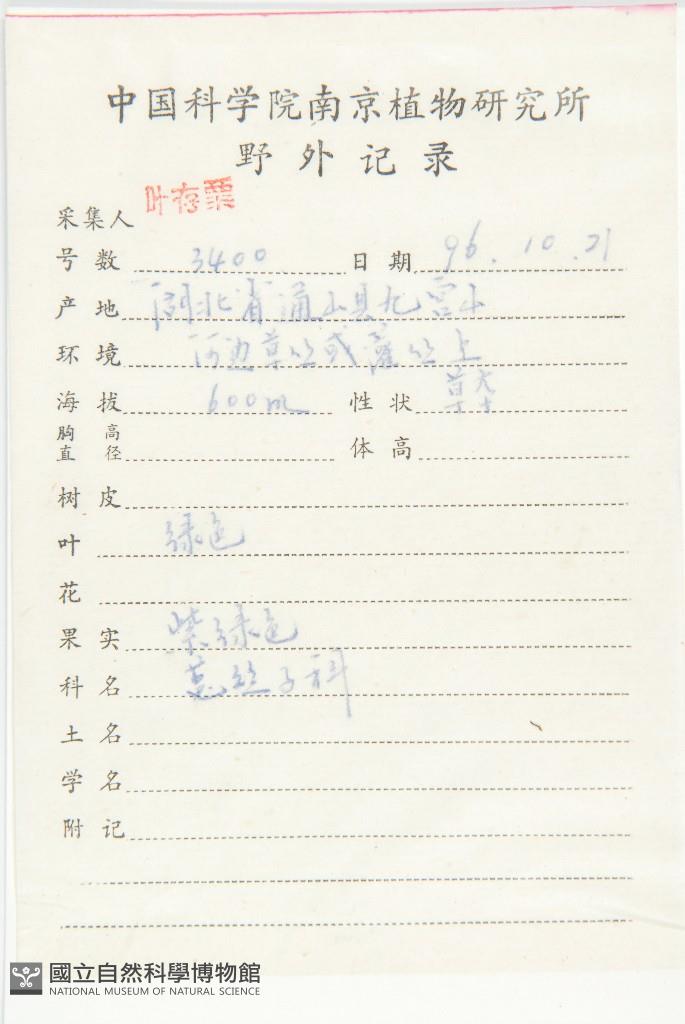 中国科学院南京植物研究所
野外记录
采集人 叶存粟
号数 3400 日期 96.10.21
产地 湖北省通山县九宫山
环境 河边草丝或灌丝上
海拔 600m 性状 草本
胸高直径 体高
树皮
叶 绿色
花
果实 紫绿色
科名 菟丝子科
土名
学名
附记
國立自然科學博物館
NATIONAL MUSEUM OF NATURAL SCIENCE